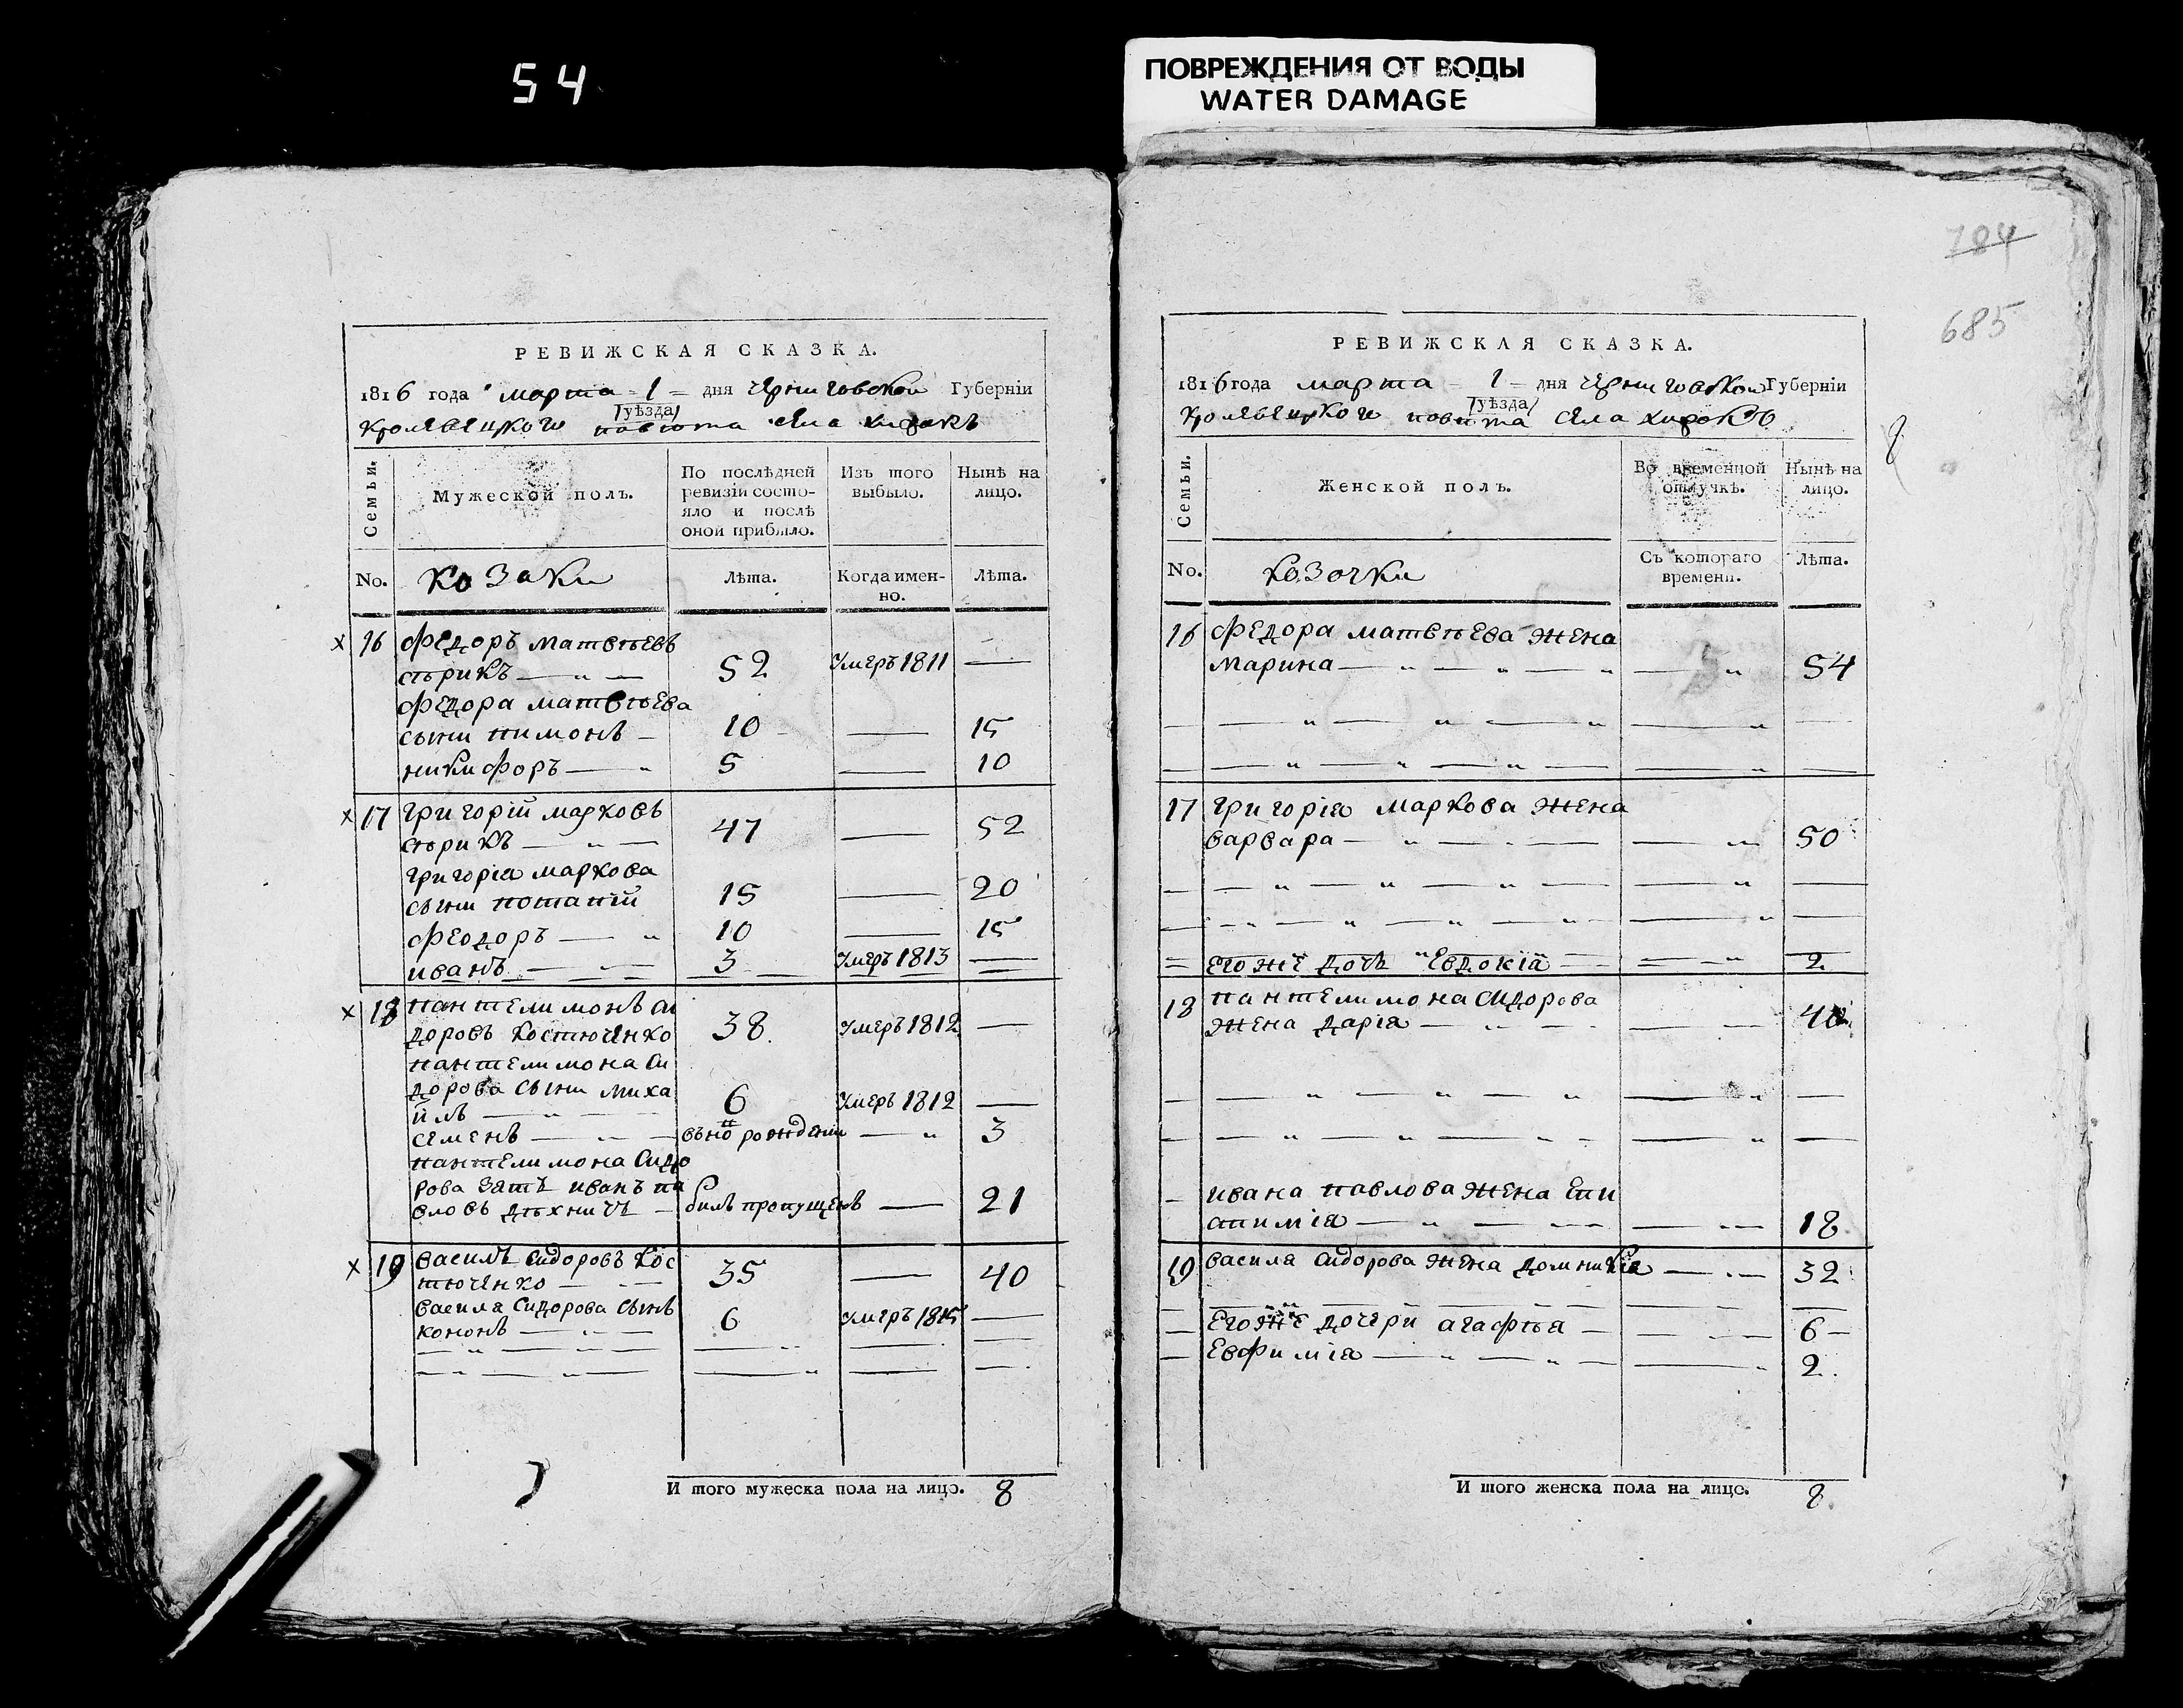 54
ПОВРЕЖДЕНИЯ ОТ ВОДЫ
WATER DAMAGE
РЕВИЖСКАЯ СКАЗКА.
1816 года марта 1 дня Черниговской Губерніи
уѣзда
Кролевецкого повѣта села
Семьи.
Мужеской полъ.
По послѣдней
ревизіи состо-
яло и послѣ
оной прибыло.
Изъ того
выбыло.
Нынѣ на
лицо.
No.
Козаки
Лѣта.
Когда имен-
но.
Лѣта.
х 16 Федоръ Матвѣевъ
52 Умеръ 1811 —
Федора Матвѣева
сыни Пимонъ — 10 — 15
Никифоръ — " 5 — 10
х 17 Григорій Марковъ
47 — 52
Григорія Маркова
сыни Потапій 15 — 20
Феодоръ — " 10 — 15
Иванъ — 3 Умеръ 1813 —
х 18 Пантелимонъ Си
доровъ Костюченко 38. Умеръ 1812 —
Пантелимона Си
дорова сыни Миха
йлъ — " — 6 Умеръ 1812 —
Семенъ — " — вьно рождени — " 3
Пантелимона Сидо
рова зять Иванъ Па
вловъ — билъ пропущенъ — 21
х 19 Василь Сидоровъ Кос
тюченко — 35 — 40
Василя Сидорова сынъ
Кононъ — 6 Умеръ 1815 —
И того мужеска пола на лицо. 8
704
685
РЕВИЖСКАЯ СКАЗКА.
1816 года марта 1 дня Черниговской Губерніи
уѣзда
Кролевецкого повѣта села
8
Семьи.
Женской полъ.
Во временной
отлучкѣ.
Нынѣ на
лицо.
No.
Козочки
Съ котораго
времени.
Лѣта.
16 Федора Матвѣева жена
Марина — " — " — " — " 54
17 Григорія Маркова жена
Варвара — " — 50
Его же дочь Евдокія — 2
18 Пантелимона Сидорова
жена Дарія —
Ивана Павлова жена Епи
— " — 18
19 Василя Сидорова жена Домникія — 32
Его же дочери Агафѣя — 6
Евфимія — " — " — 2.
И того женска пола на лицо. 8